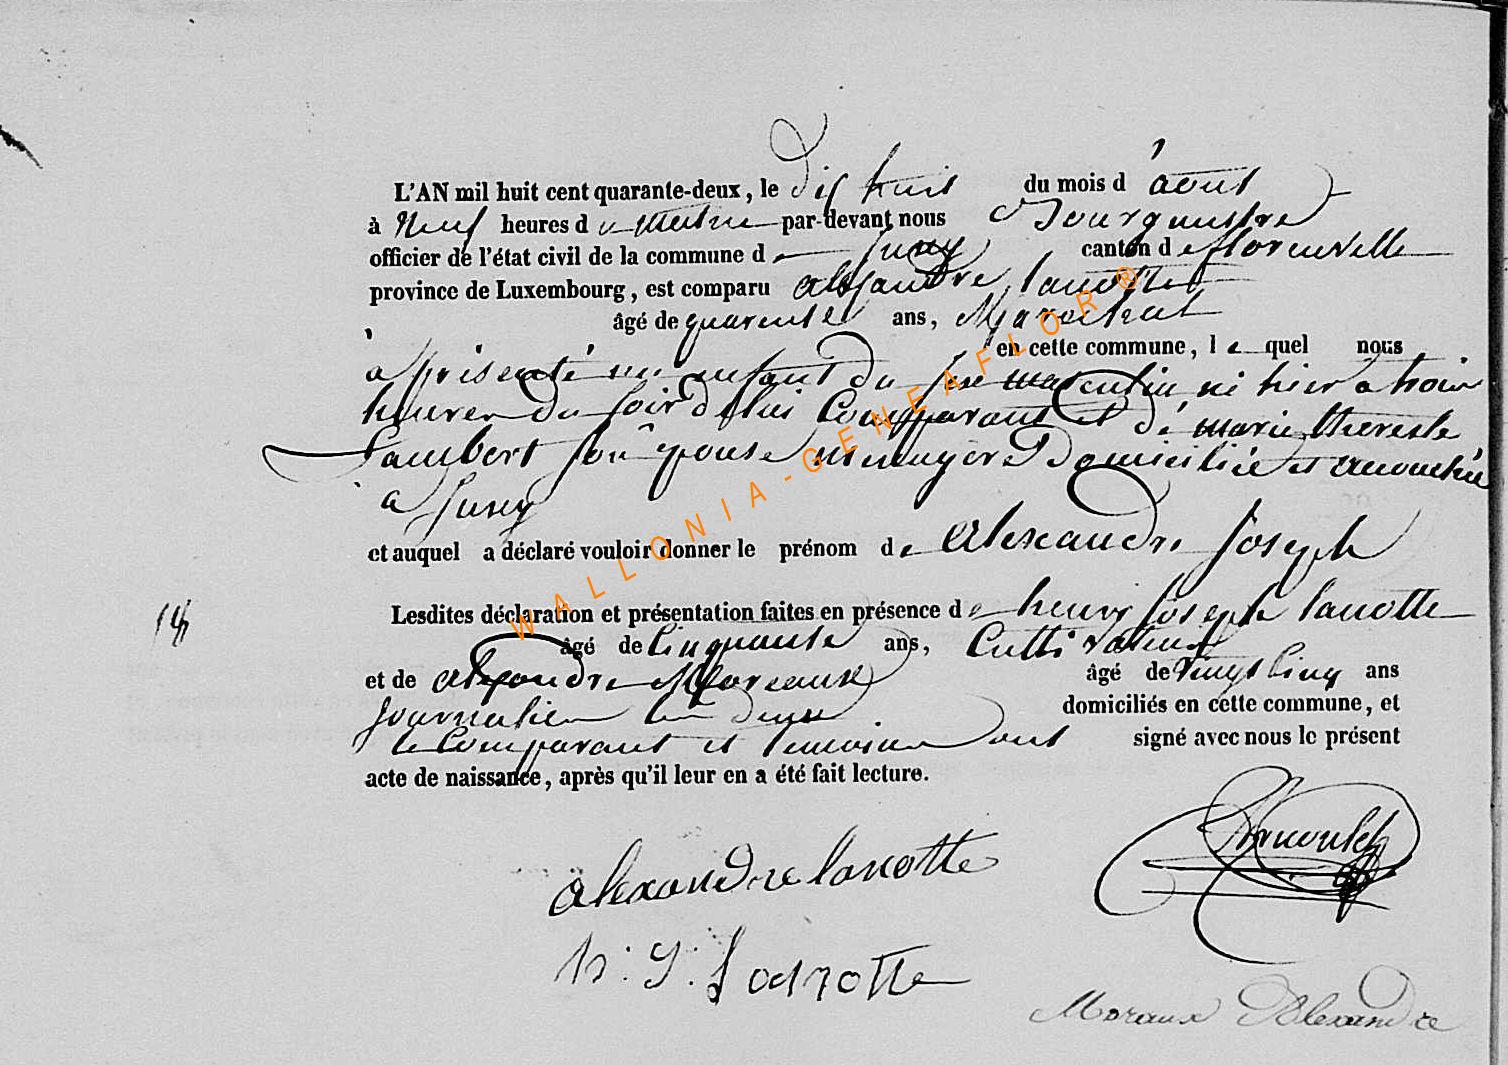 L'AN mil huit cent quarante-deux, le dix huit du mois d'août
à Neuf heures du Matin par-devant nous Bourgmestre
officier de l'état civil de la commune de Suxy canton de florenville
province de Luxembourg, est comparu alexandre lanotte
âgé de quarente ans, Marechal
en cette commune, lequel nous
a présenté un enfant du sexe masculin né hier a trois
heures du soir de lui Comparant et dé marie therese
Lambert son épouse menagère Domiciliée et accouchée
a Suxy
et auquel a déclaré vouloir donner le prénom de alexandre Joseph
14
Lesdites déclaration et présentation faites en présence de henry Joseph lanotte
âgé de Cinquante ans, Cultivateur
et de alexandre Moreaux âgé de vingt Cinq ans
journalier domiciliés en cette commune, et
le Comparant et temoins ont signé avec nous le présent
acte de naissance, après qu'il leur en a été fait lecture.
alexandre lanotte
h. J. Lanotte
Moraux Alexandre
WALLONIA-GENEAFLOR®